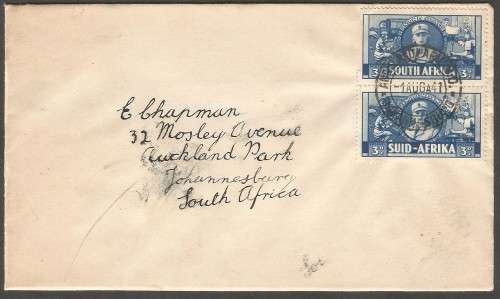 3D SOUTH AFRICA 3D
1 AUG 41
3D SUID-AFRIKA 3D
E Chapman
32 Mosley Avenue
Auckland Park
Johannesburg
South Africa